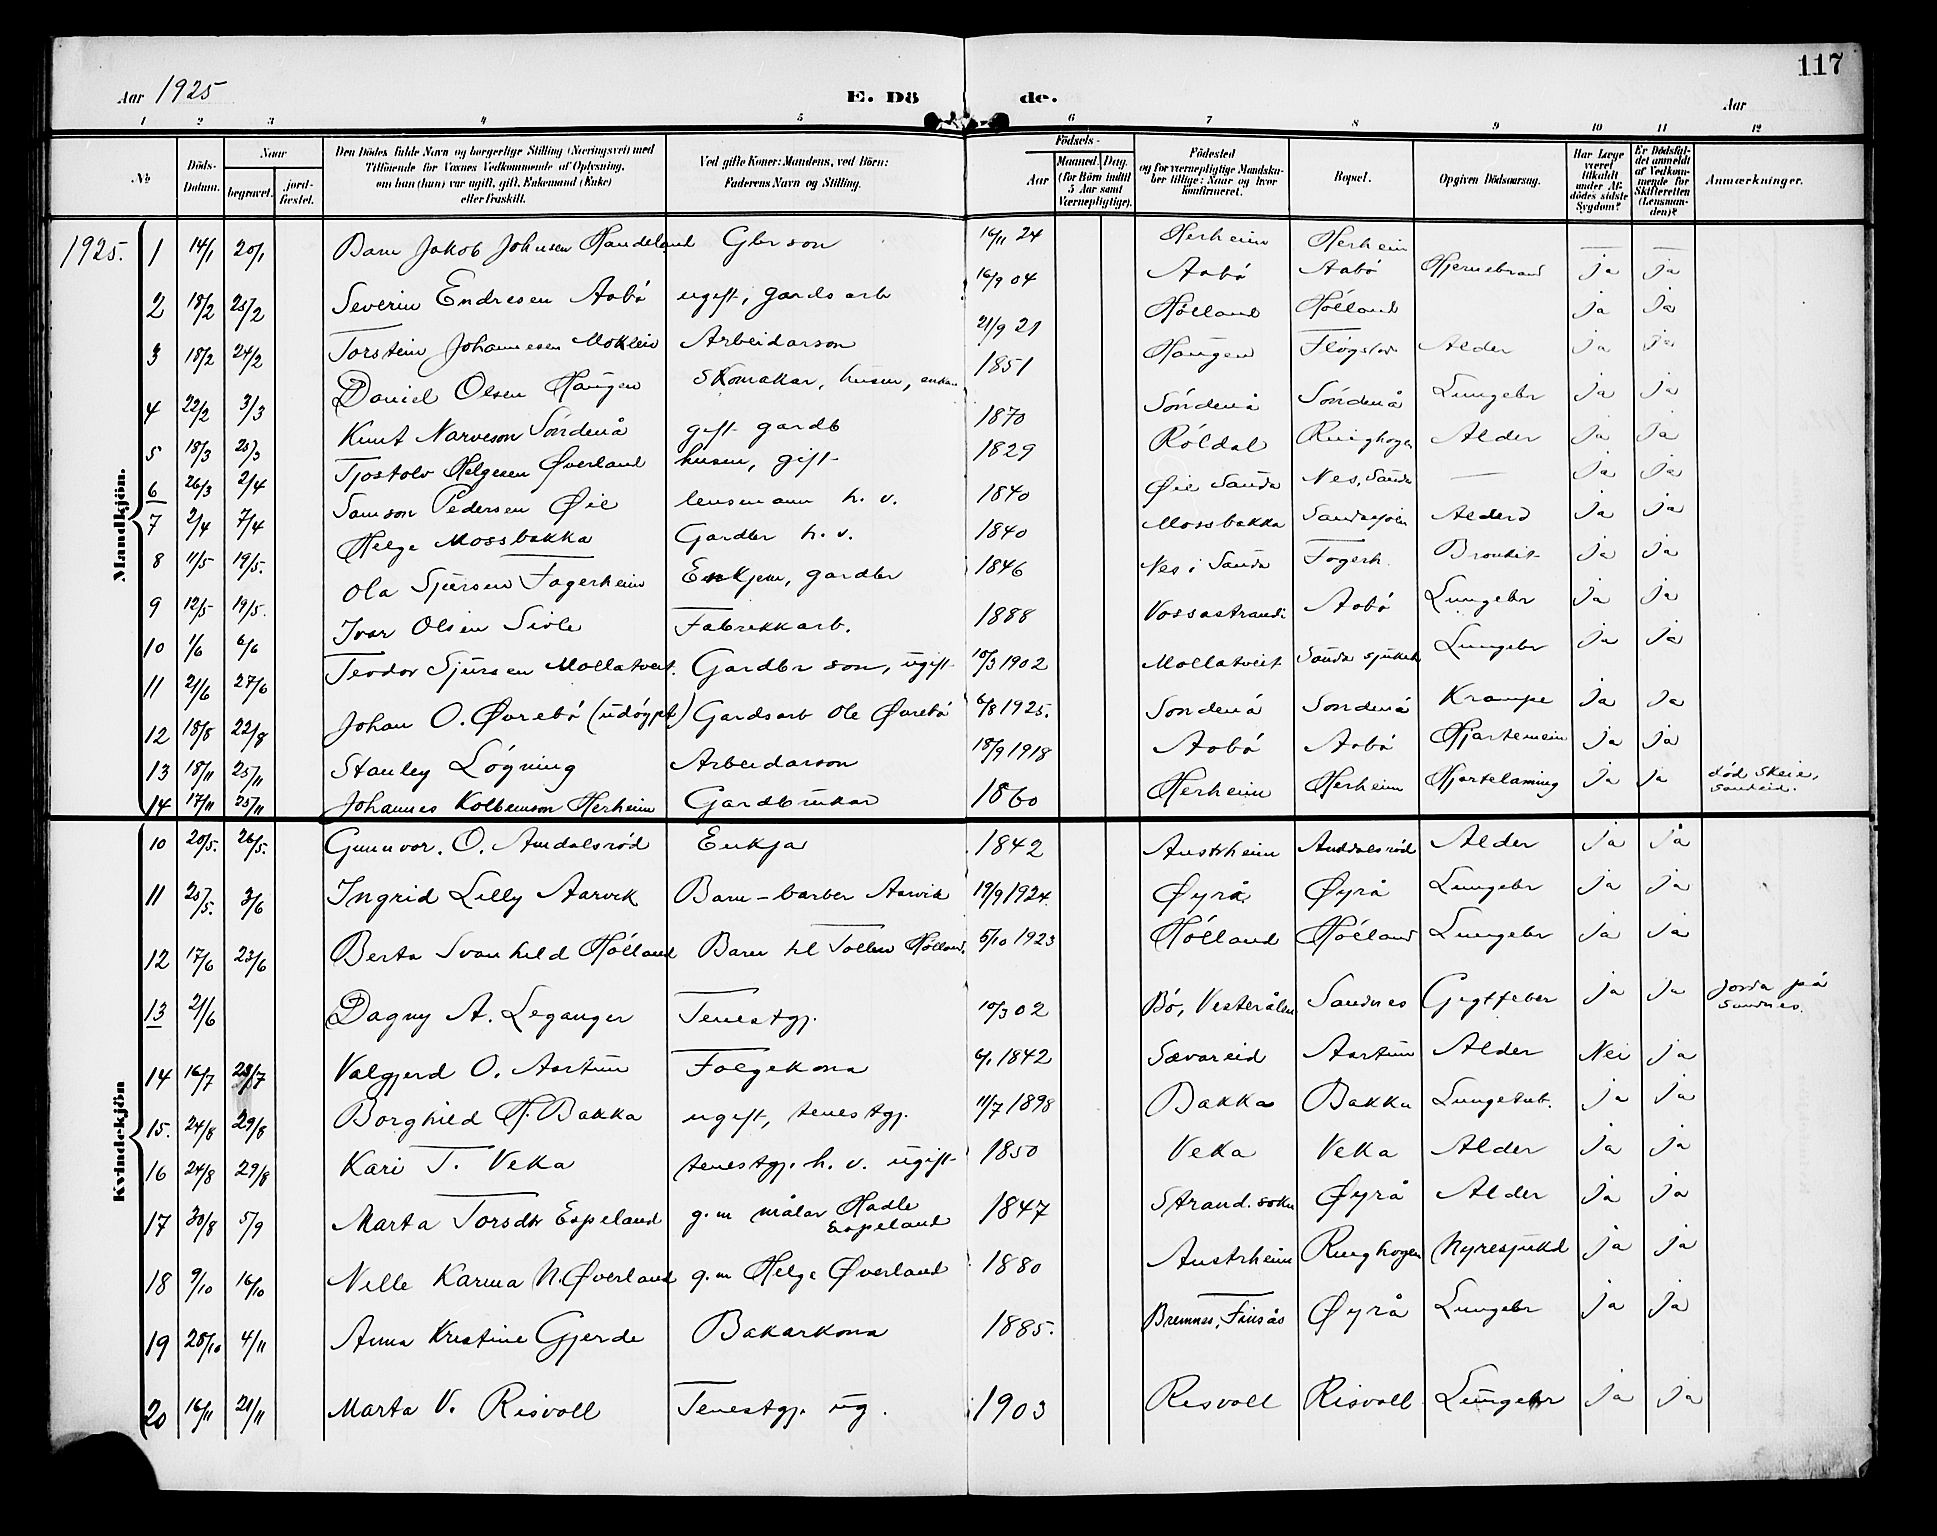 117
Aar 1925 E. Dö de. Aar
1 2 3 4 5 6 7 8 9 10 11 12
No Döds-Datum. Naar begravet. jord-fæstet. Den Dödes fulde Navn og borgerlige Stilling (Næringsvei) med Tilföiende for Voxnes Vedkommende af Oplysning, om han (hun) var ugift, gift, Enkemand (Enke) eller fraskilt. Ved gifte Koner: Mandens, ved Börn: Faderens Navn og Stilling. Födsels- Aar Maaned. Dag. (for Börn indtil 5 Aar samt Værnepligtige). Födested og for værnepligtige Mandskaber tillige: Naar og hvor konfirmeret. Bopæl. Opgiven Dödsaarsag. Har Læge været tilkaldt under Afdödes sidste Sygdom? Er Dödsfaldet anmeldt af Vedkommende for Skifteretten (Lensmanden)? Anmærkninger.
Mandkjön.
1925. 1 14/1 20/1 Barn Jakob Johnsen Handeland Gbr son 16/11 24 Herheim Herheim — —
2 18/2 25/2 Severin Endresen Aabö ugift, gards arb 16/9 04 Aabö Aabö Hjernebrand ja ja
3 18/2 24/2 Torstein Johannesen Moklein Arbeidarson 21/9 21 Hölland Hölland ja ja
4 22/2 3/3 Daniel Olsen Haugen Skomakar, husm, 1851 Haugen Flögstad Alder ja ja
5 18/3 25/3 Knut Narveson Söndenå gift gardb 1870 Söndenå Söndenå Lungebr ja ja
6 26/3 2/4 Tjostolv Helgesen Øverland husm, gift 1829 Röldal Ringhogen Alder ja ja
7 2/4 7/4 Samson Pedersen Øie lensmann h. v. 1840 Øie Sauda Nes, Sauda — ja ja
8 11/5 19/5. Helge Mossbakka Gardbr h. v. 1840 Mossbakka Saudasjöen Alderd ja ja
9 12/5 19/5. Ola Sjursen Fagerheim Enkjem, gardbr 1846 Nes i Sauda Fagerh. Bronkit ja ja
10 1/6 6/6 Ivar Olsen Sivle Fabrikkarb. 1888 Vossastrandi Aabö Lungebr ja ja
11 21/6 27/6 Teodor Sjursen Mollatveit. Gardbr son, ugift 10/3 1902 Mollatveit Sauda sjukeh Lungebr ja ja
12 18/8 22/8 Johan O. Øvrebö (udöypt) Gardsarb Ole Øvrebö 6/8 1925. Sondenå Sondenå Krampe ja ja
13 18/11 25/11 Stanley Lögning Arbeidarson 18/9 1918 Aabö Aabö Hjartemein ja ja
14 17/11 25/11 Johannes Kolbeinson Herheim Gardbrukar 1860 Herheim Herheim Hjartelaming ja ja död Skeie, Sandeid.
Kvindekjön
10 20/5. 26/5. Gunnvor. O. Amdalsröd Enkja 1842 Austrheim Amdalsröd Alder ja ja
11 25/5. 3/6 Ingrid Lilly Aarvik Barn - barber Aarvik 19/9 1924. Øyrå Øyrå Lungebr ja ja
12 17/6 23/6 Berta Svanhild Hölland Barn til Tollev Hölland. 5/10 1923 Hölland Hölland Lungebr ja ja
13 21/6 Dagny A. Leganger Tenestgj. 10/3 02 Bö, Vesterålen Sandnes Gigtfeber ja ja Jorda på Sandnes.
14 16/7 23/7 Valgjerd O. Aartun Folgekona 6/1 1842 Sævareid Aartun Alder Nei ja
15. 24/8 29/8 Borghild H. Bakka ugift, tenestgj. 11/7 1898 Bakka Bakka Lungetub. ja ja
16 24/8 29/8 Kari T. Veka tenestgj. h. v. ugift 1850 Veka Veka Alder ja ja
17 30/8 5/9 Marta Torsdtr Espeland g. m målar Hadle Espeland 1847 Strand. sokn Øyrå Alder ja ja
18 9/10 16/10 Nille Karina N. Øverland g. m Helge Øverland 1880 Austrheim Ringhogen Nyresjukd ja ja
19 28/10 4/11 Anna Kristine Gjerde Bakarkona 1885. Bremnes, Finsås Øyrå Lungebr ja ja
20 16/11 21/11 Marta V. Risvoll Tenestgj. ug. 1903 Risvoll Risvoll Lungebr ja ja